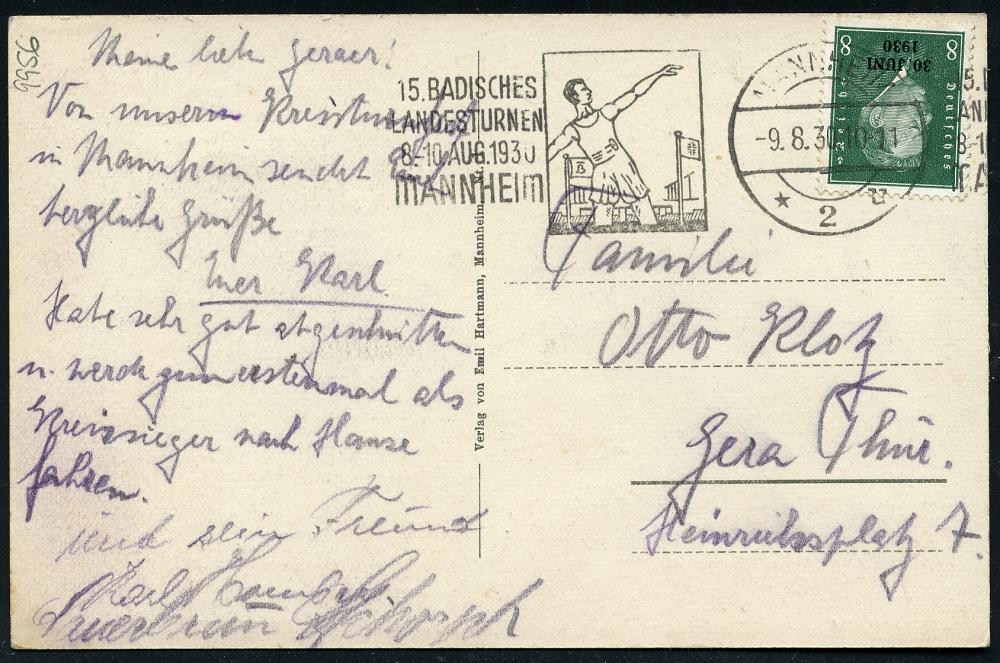 9556
Meine lieben Geraer!
Von unserm Kreisturnfest
in Mannheim sendet Euch
herzliche Grüße
Euer Karl
Habe sehr gut abgeschnitten
u. werde zum erstenmal als
Kreissieger nach Hause
fahren.
Und sein Freund
Karl
15. BADISCHES
LANDESTURNEN
8.-10 AUG. 1930
MANNHEIM
B
MANNH
-9.8.30.10-11
* 2
8 8
30. JUNI
1930
Deutsches
Reich
Verlag von Emil Hartmann, Mannheim
Familie
Otto Klotz
Gera Thür.
Heinrichsplatz 7.